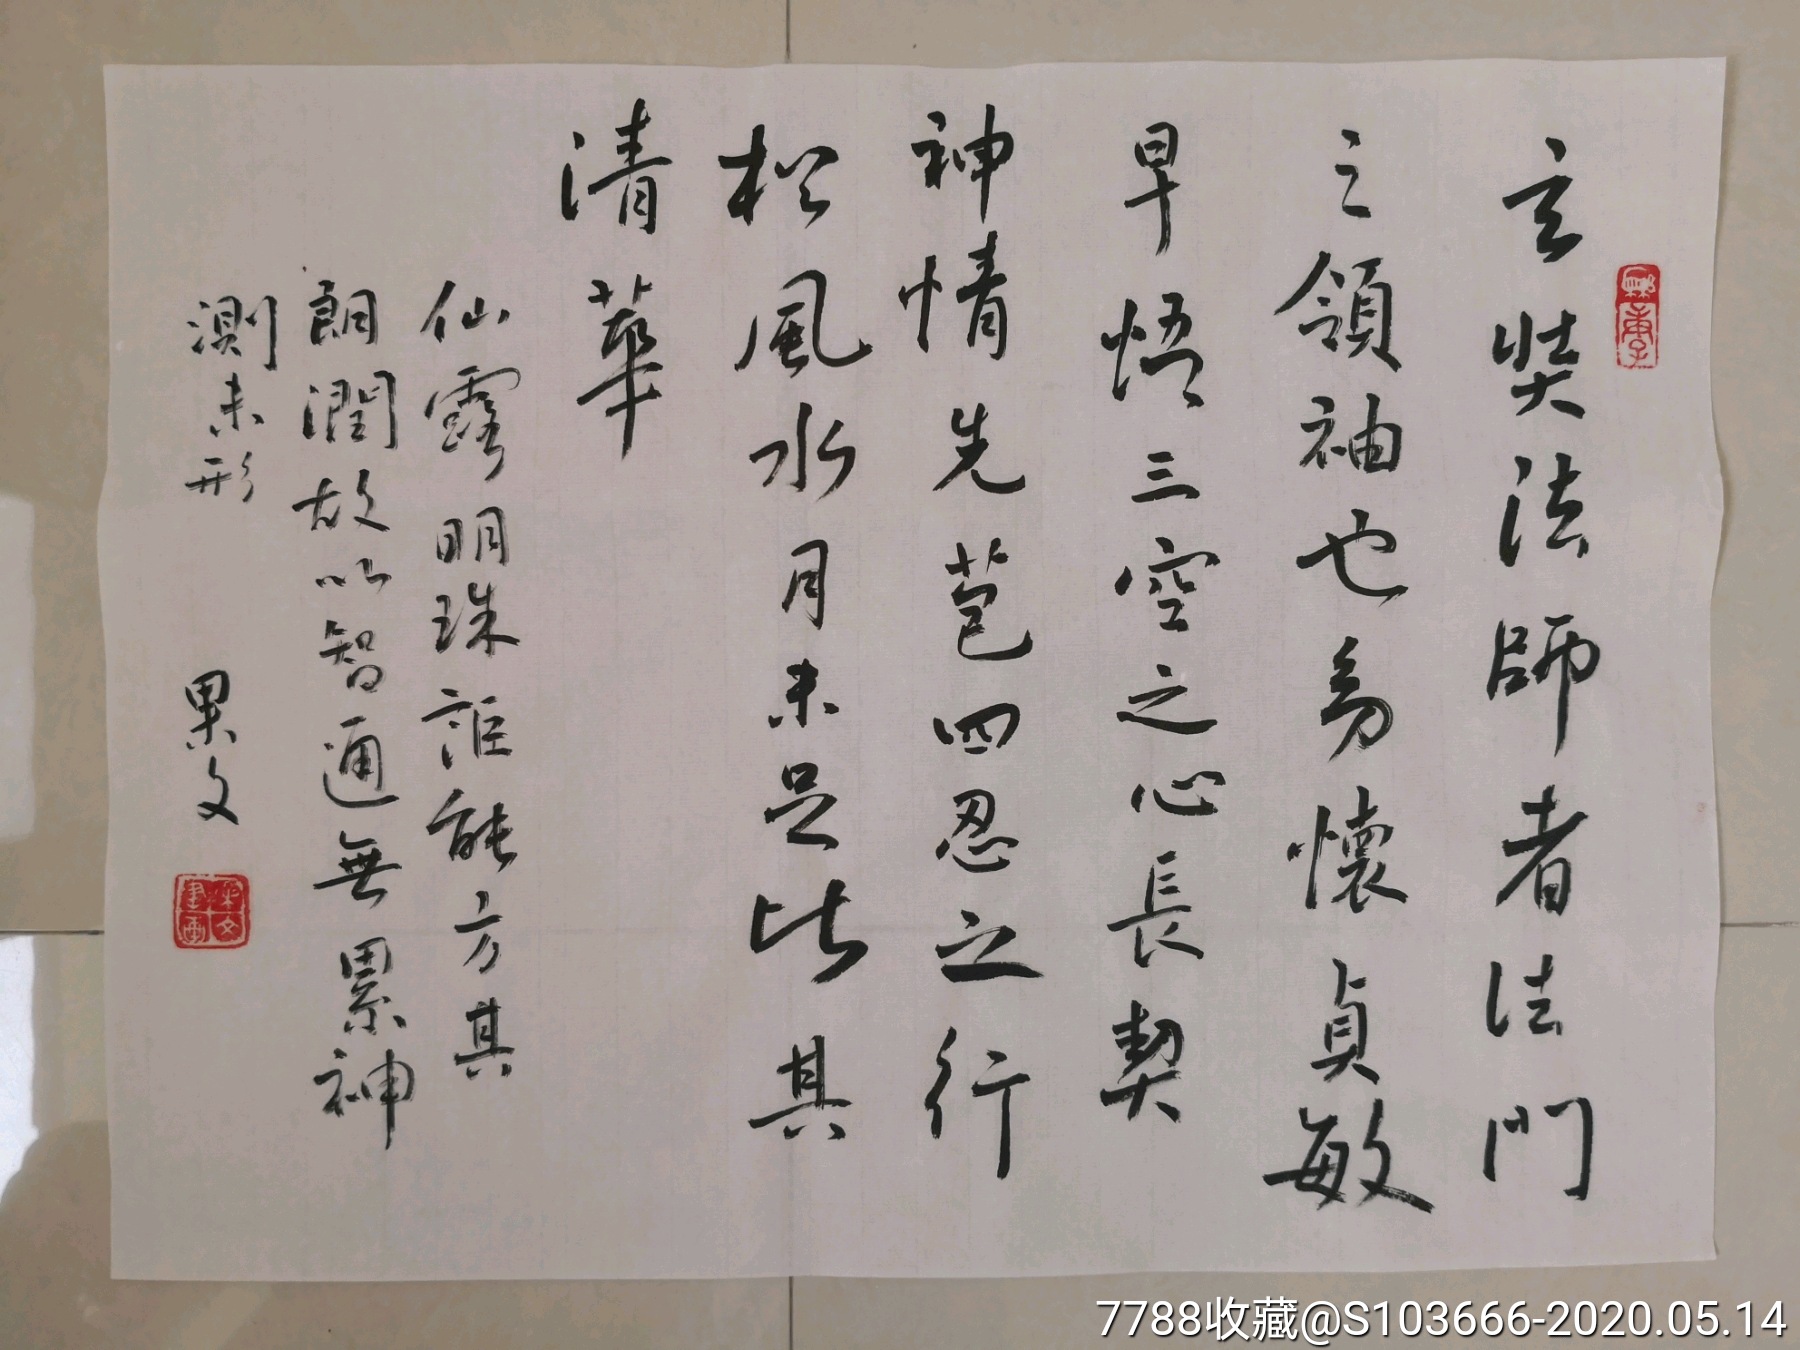 玄奘法師者法門
之領袖也㓜懷貞敏
早悟三空之心長契
神情先苞四忍之行
松風水月未足比其
清華
仙露明珠詎能方其
朗潤故以智通無累神
測未形
果文
7788收藏@S103666-2020.05.14